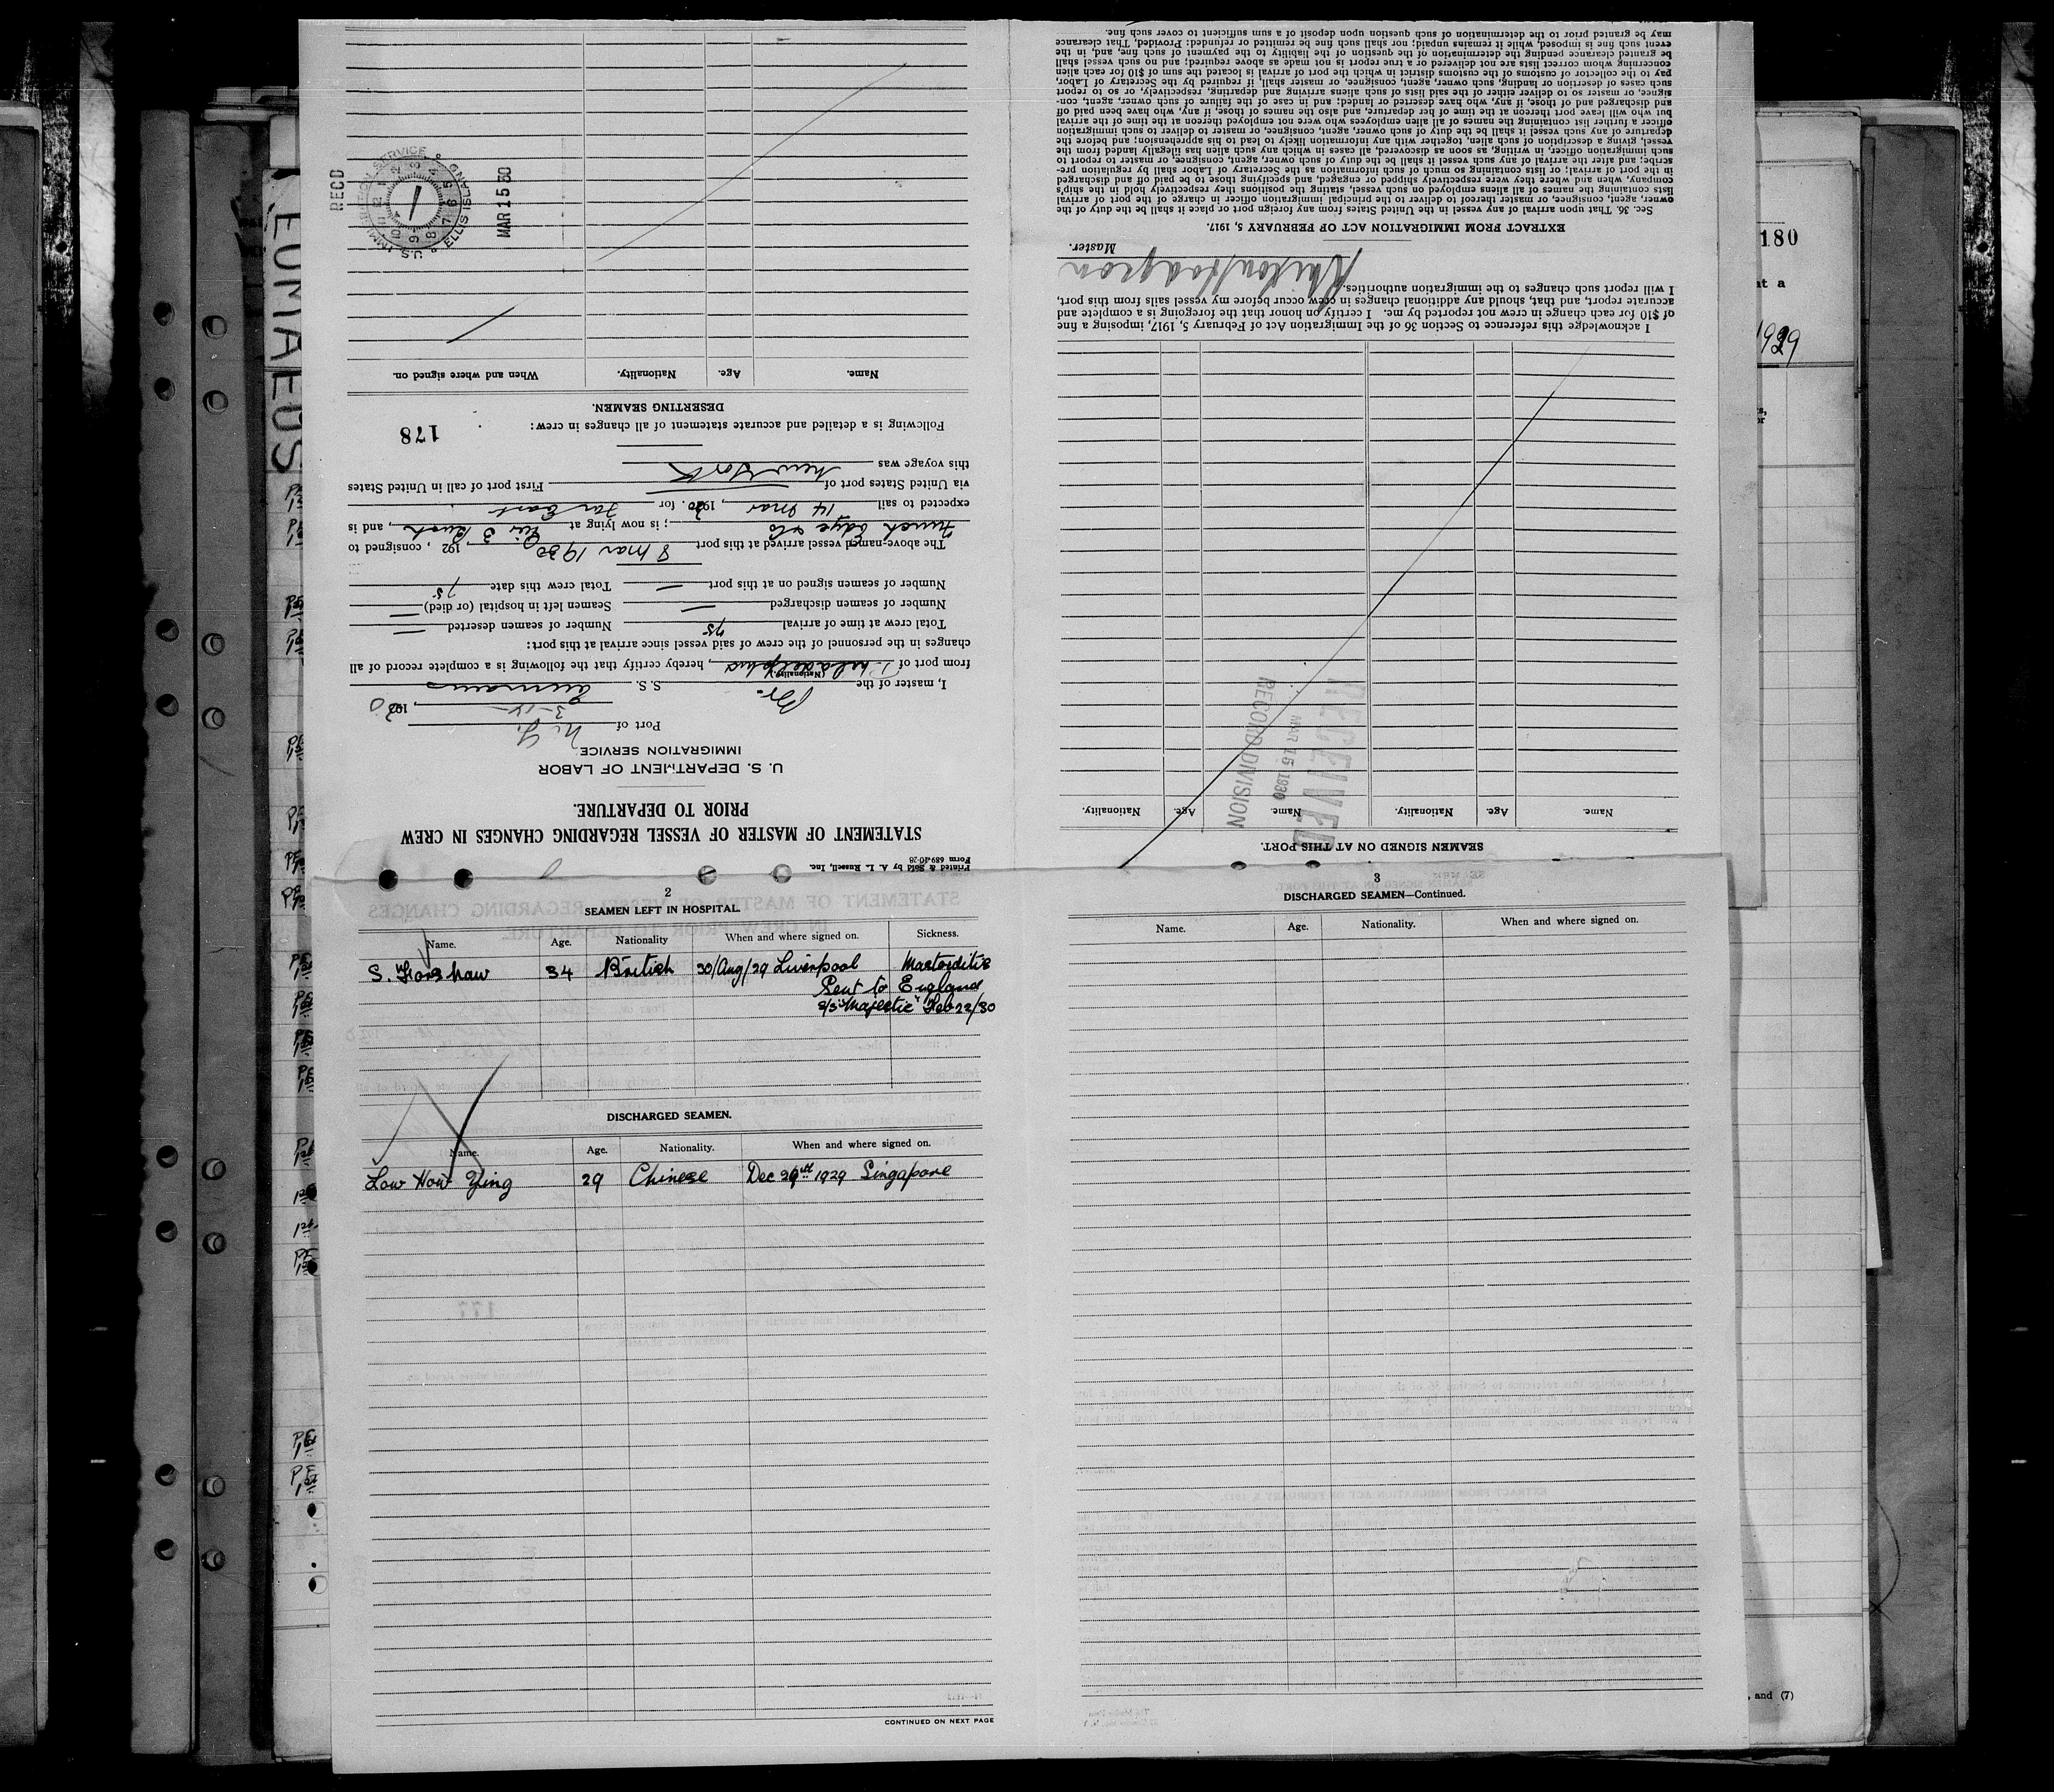 STATEMENT OF MASTER OF VESSEL REGARDING CHANGES IN CREW
PRIOR TO DEPARTURE.
U. S. DEPARTMENT OF LABOR
IMMIGRATION SERVICE
Port of N. Y.
3-15-, 1930
I, master of the Br. S. S. Eumaeus
(Nationality)
from port of Philadelphia, hereby certify that the following is a complete record of all
changes in the personnel of the crew of said vessel since arrival at this port:
Total crew at time of arrival 75 Number of seamen deserted —
Number of seamen discharged — Seamen left in hospital (or died) —
Number of seamen signed on at this port — Total crew this date 75
The above-named vessel arrived at this port 8 Mar 1930 192 , consigned to
Funch Edye & Co ; is now lying at Pier 3 Bush , and is
expected to sail 14 Mar , 1930. for Far East
via United States port of First port of call in United States
this voyage was New York
Following is a detailed and accurate statement of all changes in crew:
178
DESERTING SEAMEN.
Name. Age. Nationality. When and where signed on.
REC'D
U.S. IMMIGRATION SERVICE ELLIS ISLAND
MAR 15 30
Printed & Sold by A. L. Russell, Inc.
Form 689-10-28
SEAMEN SIGNED ON AT THIS PORT.
Name. Age. Nationality. Name. Age. Nationality.
RECEIVED
MAR 15 1930
RECORD DIVISION
I acknowledge this reference to Section 36 of the Immigration Act of February 5, 1917, imposing a fine
of $10 for each change in crew not reported by me. I certify on honor that the foregoing is a complete and
accurate report, and that, should any additional changes in crew occur before my vessel sails from this port,
I will report such changes to the immigration authorities.
Master.
EXTRACT FROM IMMIGRATION ACT OF FEBRUARY 5, 1917.
Sec. 36. That upon arrival of any vessel in the United States from any foreign port or place it shall be the duty of the
owner, agent, consignee, or master thereof to deliver to the principal immigration officer in charge of the port of arrival
lists containing the names of all aliens employed on such vessel, stating the positions they respectively hold in the ship's
company, when and where they were respectively shipped or engaged, and specifying those to be paid off and discharged
in the port of arrival; or lists containing so much of such information as the Secretary of Labor shall by regulation pre-
scribe; and after the arrival of any such vessel it shall be the duty of such owner, agent, consignee, or master to report to
such immigration officer, in writing, as soon as discovered, all cases in which any such alien has illegally landed from the
vessel, giving a description of such alien, together with any information likely to lead to his apprehension; and before the
departure of any such vessel it shall be the duty of such owner, agent, consignee, or master to deliver to such immigration
officer a further list containing the names of all alien employees who were not employed thereon at the time of the arrival
but who will leave port thereon at the time of her departure, and also the names of those, if any, who have been paid off
and discharged and of those, if any, who have deserted or landed; and in case of the failure of such owner, agent, con-
signee, or master so to deliver either of the said lists of such aliens arriving and departing, respectively, or so to report
such cases of desertion or landing, such owner, agent, consignee, or master shall, if required by the Secretary of Labor,
pay to the collector of customs of the customs district in which the port of arrival is located the sum of $10 for each alien
concerning whom correct lists are not delivered or a true report is not made as above required; and no such vessel shall
be granted clearance pending the determination of the question of the liability to the payment of such fine, and, in the
event such fine is imposed, while it remains unpaid; nor shall such fine be remitted or refunded: Provided, That clearance
may be granted prior to the determination of such question upon deposit of a sum sufficient to cover such fine.
EUMAEUS
180
at a
and (7)
2
SEAMEN LEFT IN HOSPITAL.
Name. Age. Nationality When and where signed on. Sickness.
S. Forshaw 34 British 30/Aug/29 Liverpool Mastoiditis
Sent to England
S/S "Majestic" Feb 22/30
DISCHARGED SEAMEN.
Name. Age. Nationality. When and where signed on.
Low How Ying 29 Chinese Dec 29th 1929 Singapore
CONTINUED ON NEXT PAGE
3
DISCHARGED SEAMEN—Continued.
Name. Age. Nationality. When and where signed on.